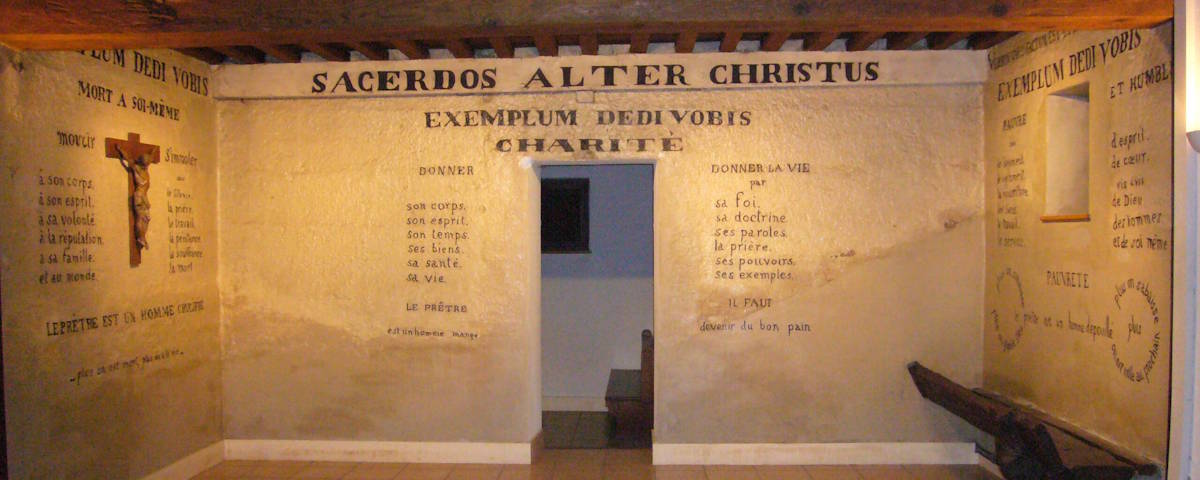 EXEMPLUM DEDI VOBIS
MORT A SOI-MÊME
mourir
à son corps.
à son esprit.
à sa volonté.
à la réputation.
à sa famille.
et au monde.
s'immoler
par
le silence.
la prière.
le travail.
la pénitence.
la souffrance.
la mort
LE PRÊTRE EST UN HOMME CRUCIFIÉ
plus on est mort, plus on a la vie
SACERDOS ALTER CHRISTUS
EXEMPLUM DEDI VOBIS
CHARITÉ
DONNER
son corps.
son esprit.
son temps.
ses biens.
sa santé.
sa vie.
LE PRÊTRE
est un homme mangé
DONNER LA VIE
par
sa foi.
sa doctrine.
ses paroles.
la prière.
ses pouvoirs.
ses exemples.
IL FAUT
devenir du bon pain
EXEMPLUM DEDI VOBIS
PAUVRE
ET HUMBLE
d'esprit.
de cœur.
vis à vis
de Dieu
des hommes
et de soi même
PAUVRETE
le prêtre est un homme dépouillé
plus on s'abaisse
plus
on est utile au prochain